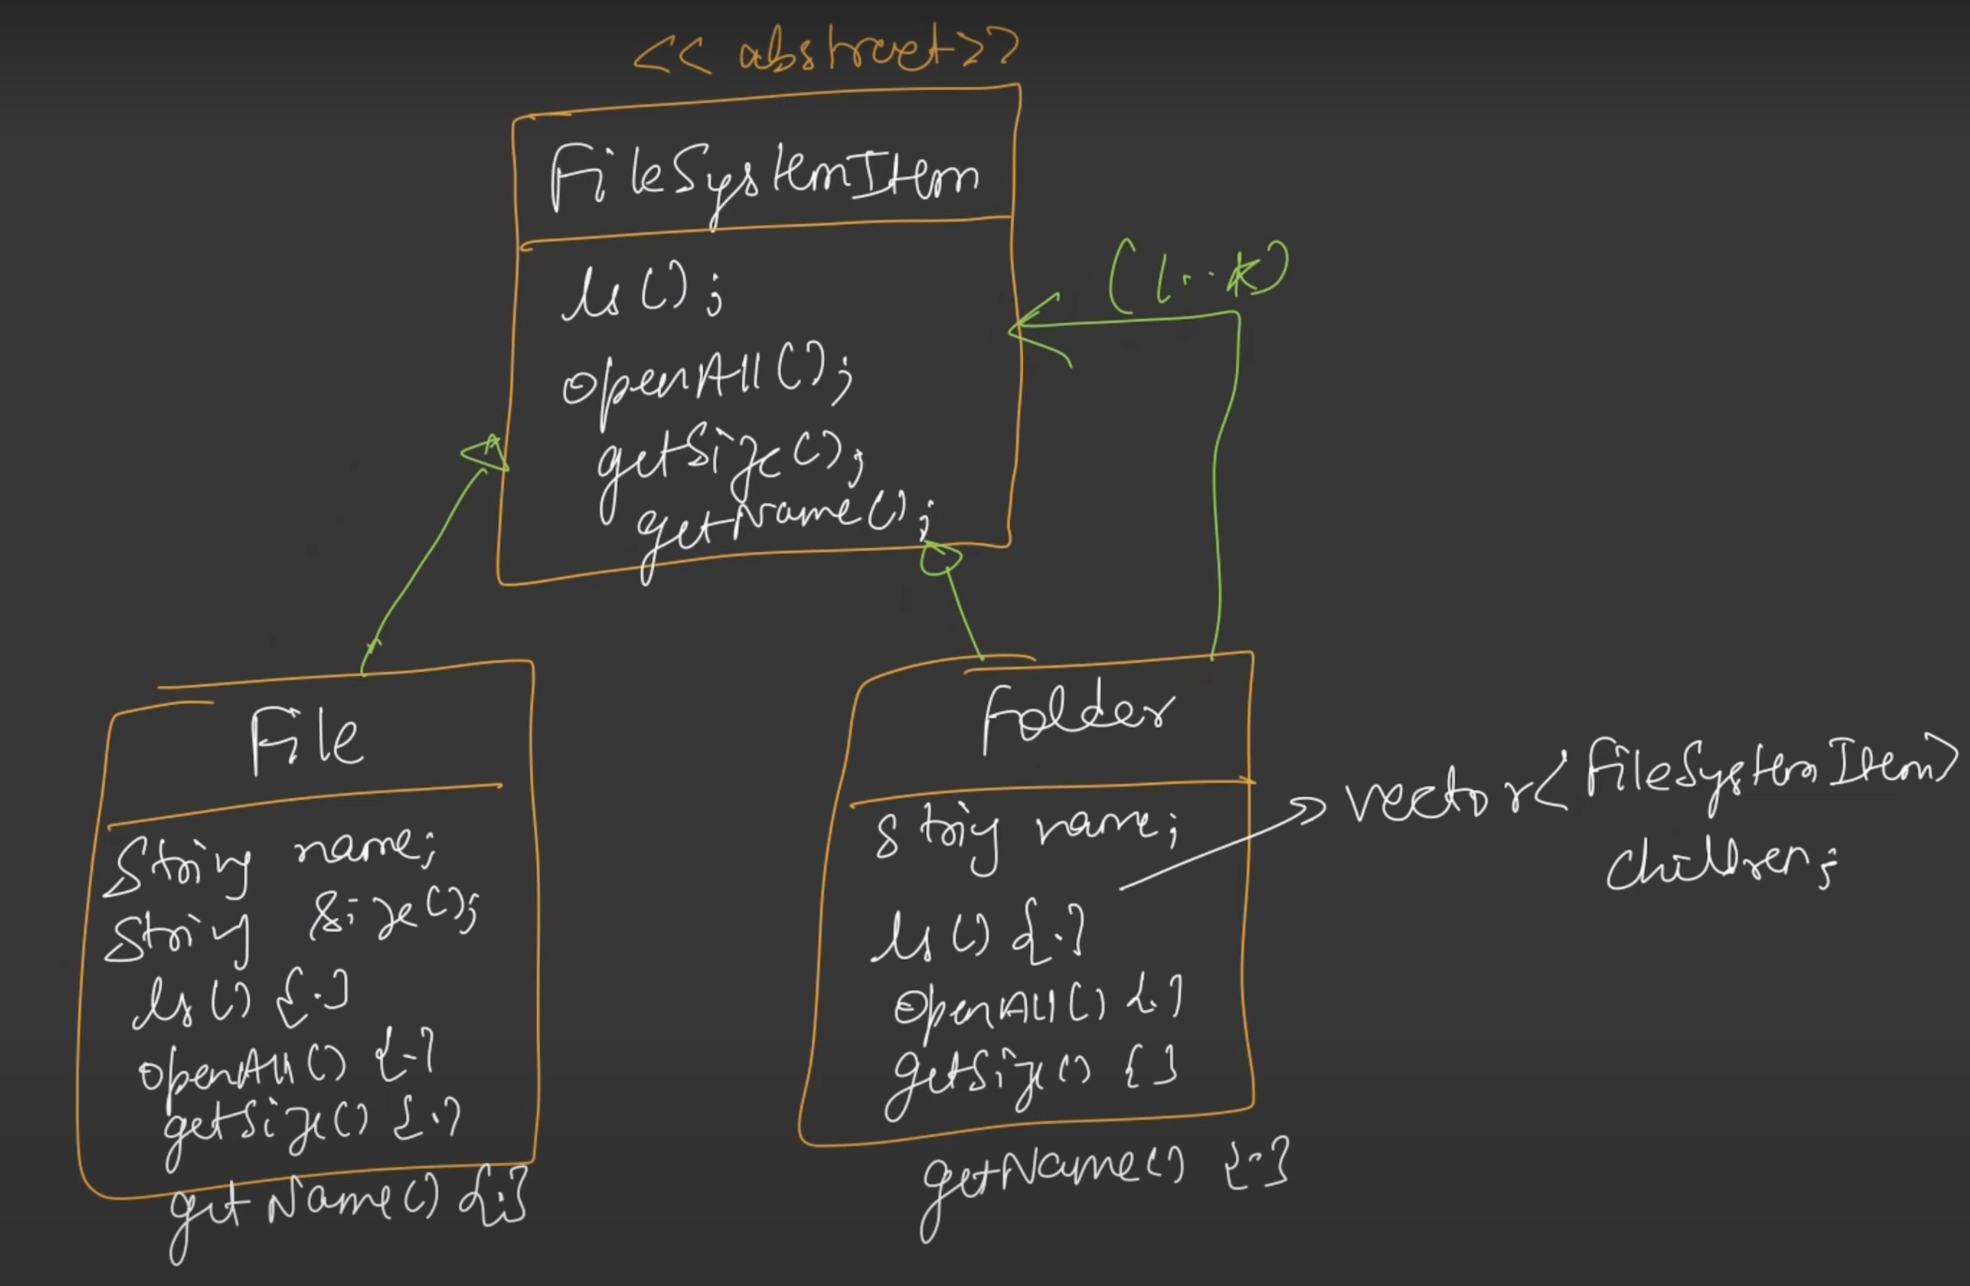 << abstract >>
FileSystemItem
ls();
openAll();
getSize();
getName();
(1..*)
File
String name;
String size();
ls() {.}
openAll() {.}
getSize() {.}
getName() {.}
Folder
String name;
ls() {.}
openAll() {.}
getSize() { }
getName() {.}
vector<FileSystemItem>
children;